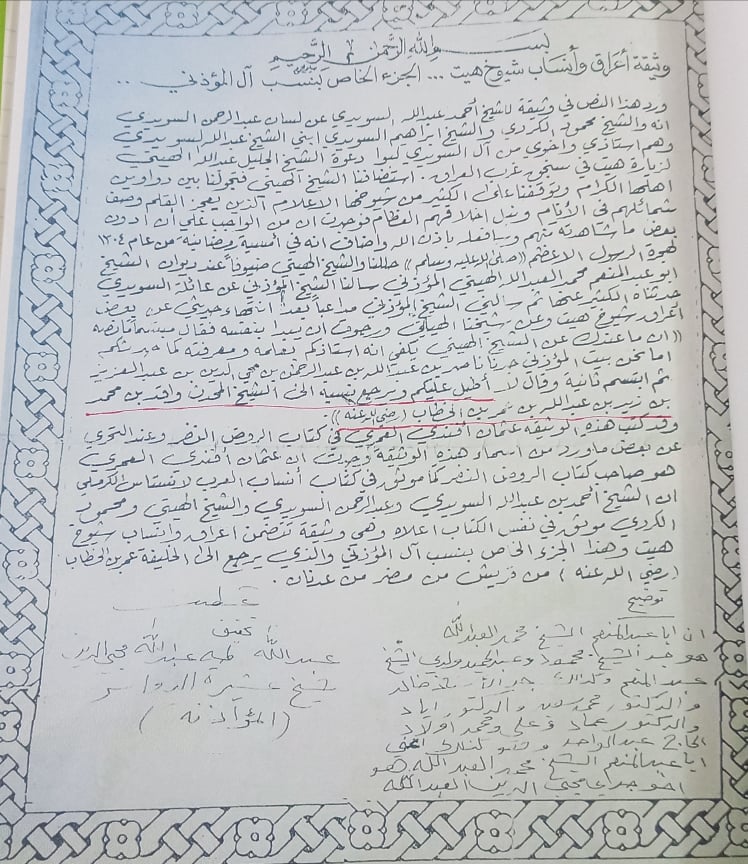 بسم الله الرحمن الرحيم
وثيقة أعراق وأنساب شيوخ هيت ... الجزء الخاص بنسب آل المؤذني ...
ورد هذا النص في وثيقة للشيخ أحمد عبدالله السويدي عن لسان عبدالرحمن السويدي
انه والشيخ محمود الكردي والشيخ ابراهيم السويدي ابني الشيخ عبدالله السويدي
وهم استاذي واخوي من آل السويدي لبوا دعوة الشيخ الجليل عبدالله الهيتي
لزيارة هيت في غرب العراق. استضافنا الشيخ الهيتي فتجولنا بين دواوين
اهلها الكرام وتوقفنا على الكثير من شيوخها الاعلام الذين يعجز القلم وصف
شمائلهم في الأنام ونبل اخلاقهم العظام فوجدت ان من الواجب علي أن ادون
بعض ما شاهدته منهم وسأفعله باذن الله واضاف انه في أمسية رمضانية من عام ١٢٠٤
لهجرة الرسول الاعظم (صلى الله عليه وسلم) حللنا والشيخ الهيتي ضيوفاً عند ديوان الشيخ
ابو عبدالمنعم محمد العبدالله الهيتي المؤذني سألنا الشيخ المؤذني عن عائلة السويدي
حدثناه الكثير عنها ثم سألني الشيخ المؤذني مداعباً بعد انتهاء حديثي عن بعض
أعراق شيوخ هيت وعن شيخنا الهيتي ورجوت ان يبدا بنفسه فقال مبتسماً نصه
((ان ما عندك عن الشيخ الهيتي يكفي انه استاذكم بعلمه ومعرفته كما حدثتكم
اما نحن بيت المؤذني جدنا ناصر بن عبدالله بن عبدالرحمن بن محي الدين بن عبدالعزيز
ثم ابتسم ثانية وقال لا أطيل عليكم ويرجع بنسبه الى الشيخ المحدث واقد بن محمد
بن زيد بن عبدالله بن عمر بن الخطاب (رضي الله عنه))
وقد كتب هذه الوثيقة عثمان أفندي العمري في كتاب الروض النضر وعند التحري
عن بعض ماورد من اسماء هذه الوثيقة وجدت ان عثمان أفندي العمري
هو صاحب كتاب الروض النضر كما موثق في كتاب أنساب العرب لانستاس الكرملي
ان الشيخ أحمد بن عبدالله السويدي وعبدالرحمن السويدي والشيخ الهيتي ومحمود
الكردي موثق في نفس الكتاب اعلاه وهي وثيقة تتضمن اعراق وانساب شيوخ
هيت وهذا الجزء الخاص بنسب آل المؤذني والذي يرجع الى الخليفة عمر بن الخطاب
(رضي الله عنه) من قريش من مضر من عدنان.
توضيح
ان اباعبدالمنعم الشيخ محمد العبدالله
هو جد الشيخ محمود وعبدالحميد ولدي الشيخ
عبدالمنعم وكذلك جد الاستاذ خالد
والدكتور محمد والدكتور اياد
والدكتور عماد وعلي ومحمد اولاد
الحاج عبدالواحد
اباعبدالمنعم الشيخ محمد العبدالله هو
اخو جدي محي الدين العبدالله
تحقيق
عبدالله طه عبدالله محي الدين
شيخ عشيرة
(المؤاذنه)